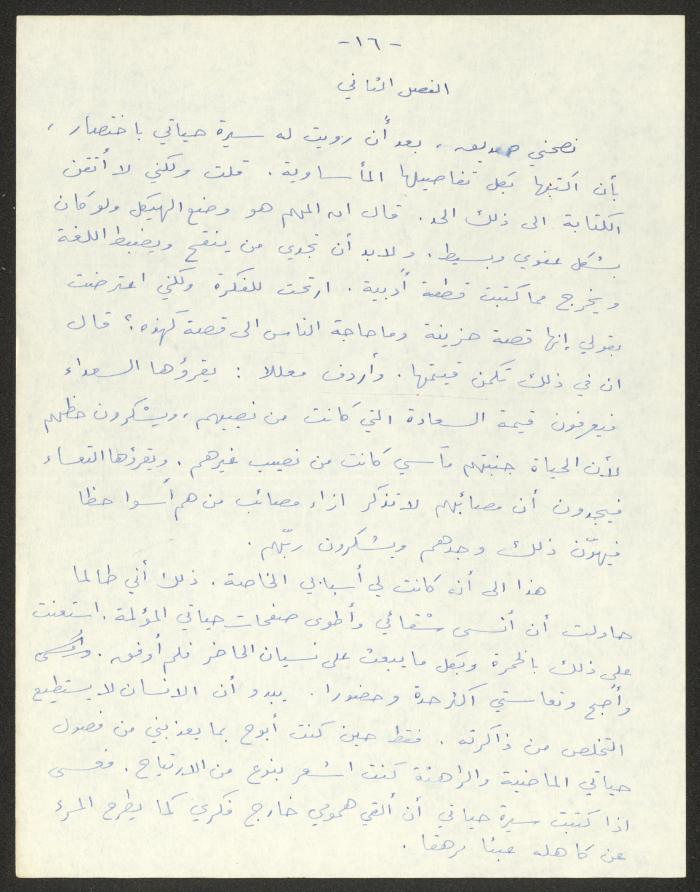 -١٦-
الفصل الثاني
نصحني صديق ، بعد أن رويت له سيرة حياتي باختصار ،
بأن اكتبها بكل تفاصيلها المأساوية . قلت ولكني لا أتقن
الكتابة الى ذلك الحد . قال ان المهم هو وضع الهيكل ولو كان
بشكل عفوي وبسيط . ولا بد أن تجدي من ينقح ويضبط اللغة
ويخرج مما كتبت قطعة أدبية . ارتحت للفكرة ولكني اعترضت
بقولي إنها قصة حزينة وما حاجة الناس الى قصة كهذه ؟ قال
ان في ذلك تكمن قيمتها . وأردف معللا : يقرؤها السعداء
فيعرفون قيمة السعادة التي كانت من نصيبهم ، ويشكرون حظهم
لأن الحياة جنبتهم مآسي كانت من نصيب غيرهم . ويقرؤها التعساء
فيجدون أن مصائبهم لا تذكر ازاء مصائب من هم أسوا حظا
فيهوّن ذلك وجدهم ويشكرون ربّهم .
هذا الى أنه كانت لي أسبابي الخاصة . ذلك أني طالما
حاولت أن أنسى شقائي وأطوى صفحات حياتي المؤلمة . استعنت
على ذلك بالخمرة وبكل ما يبعث على نسيان الحاضر فلم أوفق .
وأصبح وتعاستي اكثر حدة وحضورا . يبدو أن الانسان لا يستطيع
التخلص من ذاكرته . فقط حين كنت أبوح بما يعذبني من فصول
حياتي الماضية والراهنة كنت اشعر بنوع من الارتياح . فعسى
اذا كتبت سيرة حياتي أن ألقي همومي خارج فكري كما يطرح المرء
عن كاهله عبئا مرهقا .